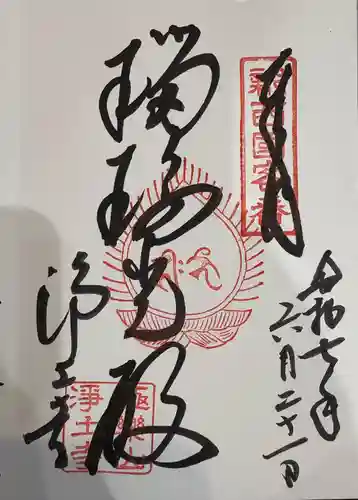 奉拝
新西国客番
令和七年
六月二十一日
瑠璃光殿
浄土寺
極樂山
淨土寺